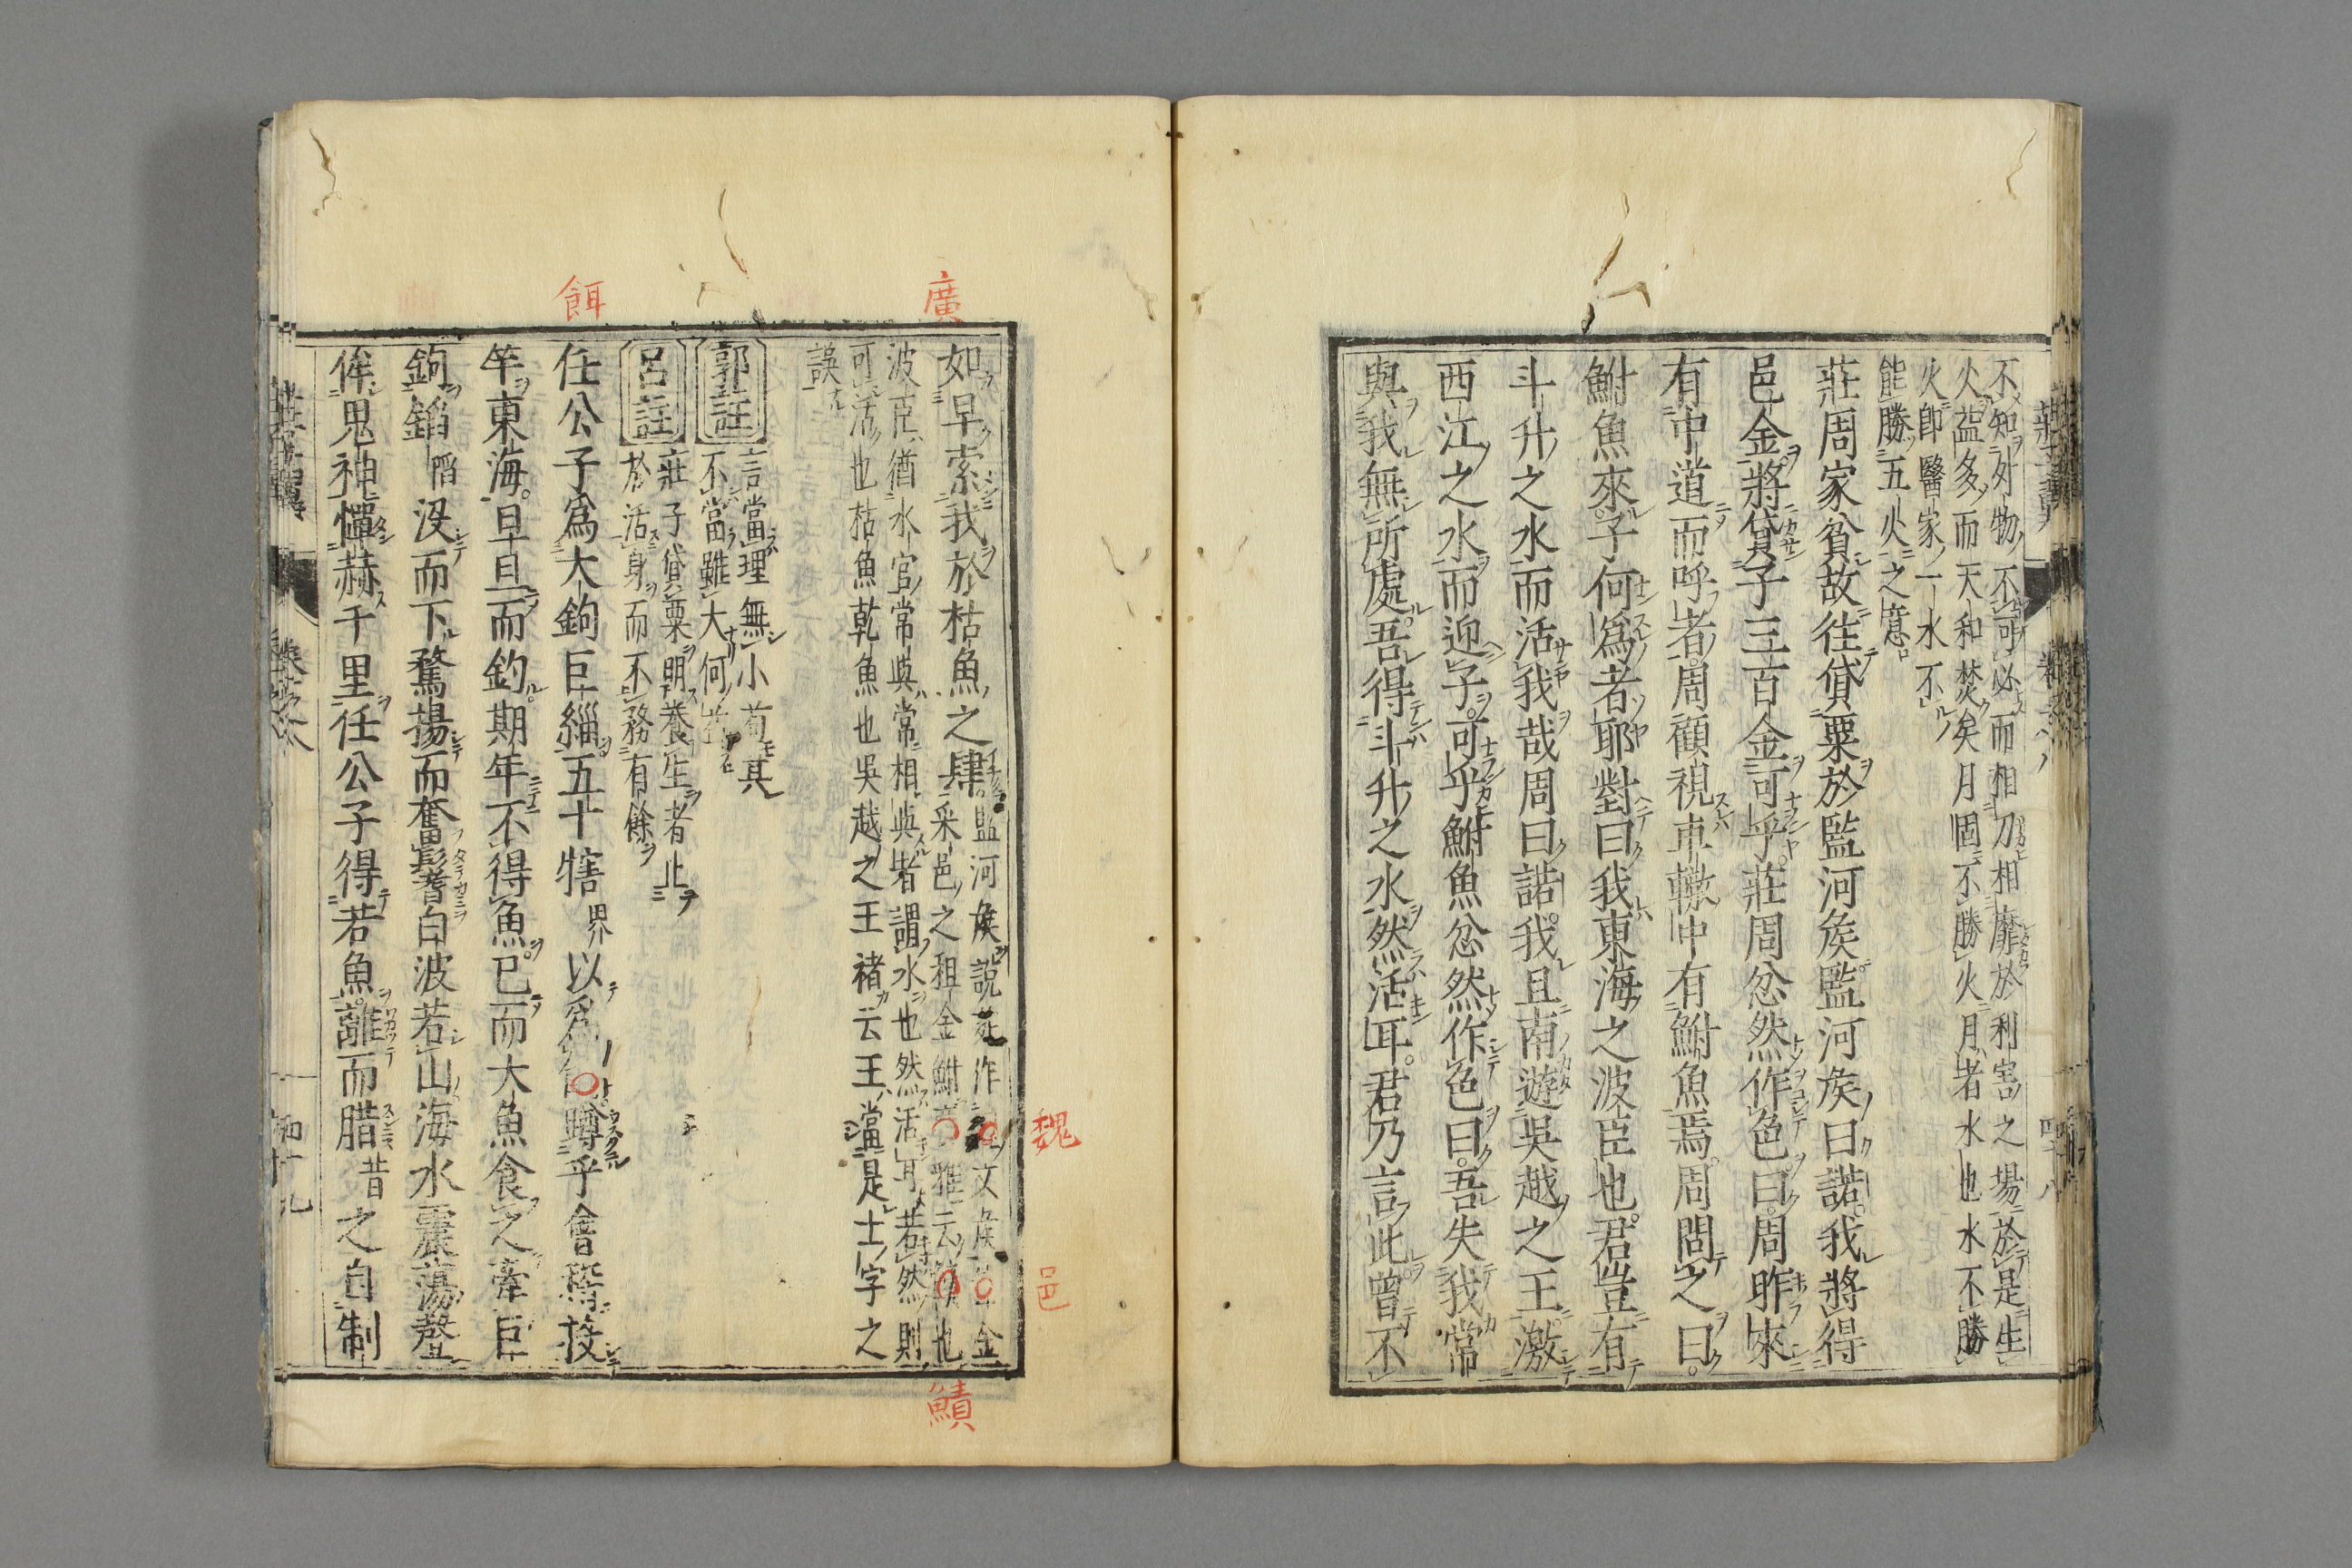 不知外物不可必而相刃相靡於利害之場於是生
火益多而天和焚矣月固不勝火月者水也水不勝
火卽醫家一水不
能勝五火之意
莊周家貧故往貸粟於監河矦監河矦曰諾我將得
邑金將貸子三百金可乎莊周忿然作色曰周昨來
有中道而呼者周顧視車轍中有鮒魚焉周問之曰
鮒魚來子何爲者耶對曰我東海之波臣也君豈有
斗升之水而活我哉周曰諾我且南遊吳越之王激
西江之水而迎子可乎鮒魚忿然作色曰吾失我常
與我無所處吾得斗升之水然活耳君乃言此曾不
廣
如早索我於枯魚之肆
監河矦說苑作文矦金
采邑之租金鮒雅云也
魏
邑
鯖
波臣猶水官常與常相與者謂水也然活耳若然則
可活也枯魚乾魚也吳越之王褚云王當是士字之
誤
郭註
言當理無小苟其
不當雖大何
呂註
莊子貸粟明養生者止
於活身而不務有餘
餌
任公子爲大鉤巨緇五十犗界以爲蹲乎會稽投
竿東海旦旦而釣期年不得魚已而大魚食之牽巨
鉤錎陷沒而下騖揚而奮鬐白波若山海水震蕩聲
侔鬼神憚赫千里任公子得若魚離而腊昔之自制